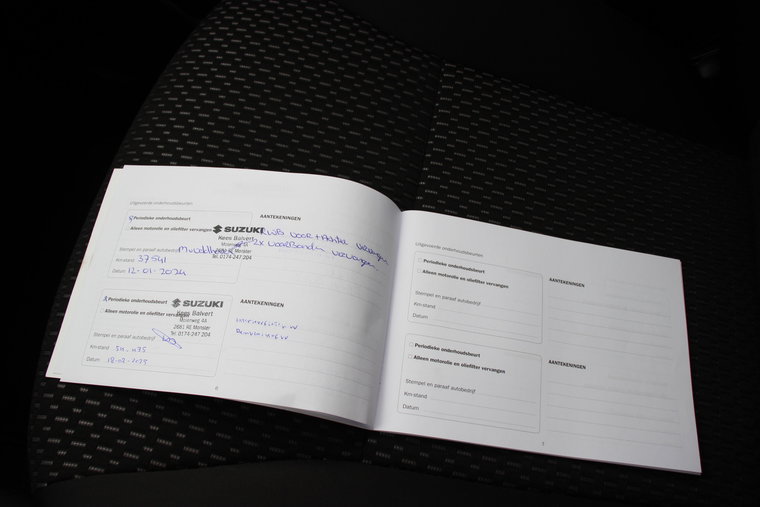 Uitgevoerde onderhoudsbeurten
Periodieke onderhoudsbeurt
Alleen motorolie en oliefilter vervangen
Stempel en paraaf autobedrijf
Km-stand 37541
Datum 12-01-2024
SUZUKI
Kees Balvert
Molenweg 4A
2681 RE Monster
Tel. 0174-247 204
AANTEKENINGEN
voor + Achter vervangen
2x voorbanden vervangen
Periodieke onderhoudsbeurt
Alleen motorolie en oliefilter vervangen
Stempel en paraaf autobedrijf
Km-stand
Datum
SUZUKI
Kees Balvert
Molenweg 4A
2681 RE Monster
Tel. 0174-247 204
AANTEKENINGEN
6
Uitgevoerde onderhoudsbeurten
Periodieke onderhoudsbeurt
Alleen motorolie en oliefilter vervangen
Stempel en paraaf autobedrijf
Km-stand
Datum
AANTEKENINGEN
Periodieke onderhoudsbeurt
Alleen motorolie en oliefilter vervangen
Stempel en paraaf autobedrijf
Km-stand
Datum
AANTEKENINGEN